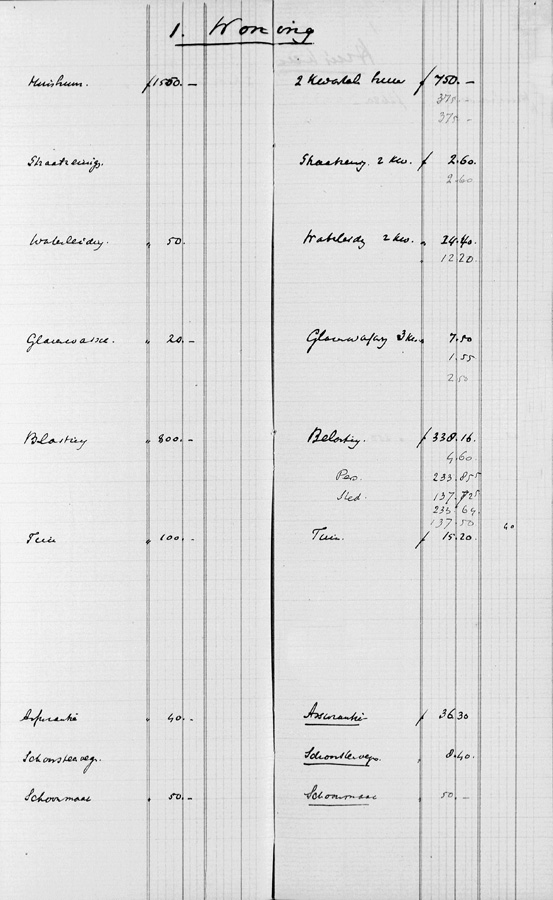 1. Woning
Huishuur. f 1500.— 2 Kwartal huur f 750.—
375.—
375.—
Straatreinig. Straatreinig. 2 Kw. f 2.60.
2.60
Waterleiding. " 50. Waterleidg 2 Kw. " 24.40.
12.20
Glazenwassch. " 20.— Glazenwasschg 3 Kw. " 7.50
1.55
2.50
Belasting " 800.— Belasting. f 338.16.
4.60.
Pers. 233.85
Sted. 137.
235.64
137.50
40
Tuin " 100.— Tuin. f 15.20.
Assurantie " 40.— Assurantie f 36.30
Schoorsteenveg. Schoorsteenvegr. " 8.40.
Schoonmaak " 50.— Schoonmaak " 50.—